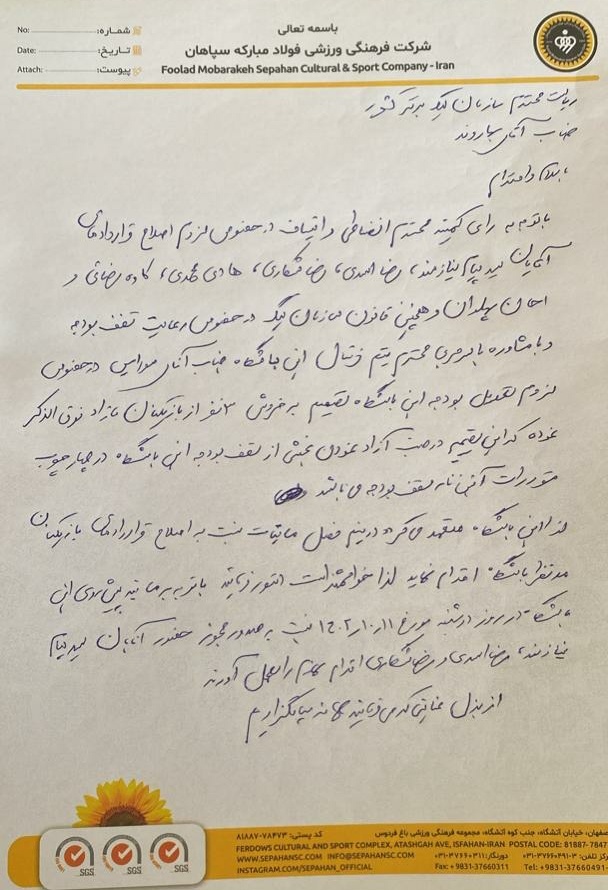 باسمه تعالی
شرکت فرهنگی ورزشی فولاد مبارکه سپاهان
Foolad Mobarakeh Sepahan Cultural & Sport Company - Iran
No: شماره:
Date: تاریخ:
Attach: پیوست:
ریاست محترم سازمان لیگ برتر کشور
جناب آقای بهاروند
با سلام و احترام
با توجه به رای کمیته محترم انضباطی و استیناف در خصوص لزوم اصلاح قراردادهای
آقایان سید پیام نیازمند، رضا اسدی، رضا شکاری، هادی محمدی، کاوه رضائی و
احسان پهلوان و همچنین قانون سازمان لیگ در خصوص رعایت سقف بودجه
و با مشاوره با سرمربی محترم تیم فوتبال این باشگاه جناب آقای مورایس در خصوص
لزوم تعدیل بودجه این باشگاه تصمیم به فروش ۳ نفر از بازیکنان مازاد فوق الذکر
نموده که این تصمیم در جهت آزاد نمودن بخشی از سقف بودجه این باشگاه در چهارچوب
مقررات آئین نامه سقف بودجه می باشد
لذا این باشگاه متعهد می گردد در نیم فصل نسبت به اصلاح قراردادهای بازیکنان
مد نظر باشگاه اقدام نماید لذا خواهشمند است دستور فرمائید با توجه به بازی پیش روی این
باشگاه در روز دوشنبه مورخ ۱۴۰۲/۱۰/۱۱ نسبت به صدور مجوز حضور آقایان سید پیام
نیازمند، رضا اسدی و رضا شکاری اقدام لازم را بعمل آورند
از بذل عنایتی که می فرمائید سپاسگزاریم
SGS SGS SGS
اصفهان، خیابان آتشگاه، جنب کوه آتشگاه، مجموعه فرهنگی ورزشی باغ فردوس کد پستی: ۷۸۴۷۳-۸۱۸۸۷
FERDOWS CULTURAL AND SPORT COMPLEX, ATASHGAH AVE, ISFAHAN-IRAN POSTAL CODE: 81887-7847
مرکز تلفن: ۳-۰۳۱-۳۷۶۶۰۴۹۱ دورنگار: ۰۳۱-۳۷۶۶۰۳۱۱ WWW.SEPAHANSC.COM INFO@SEPAHANSC.COM
Tel: +9831-37660491 Fax: +9831-37660311 INSTAGRAM.COM/SEPAHAN_OFFICIAL